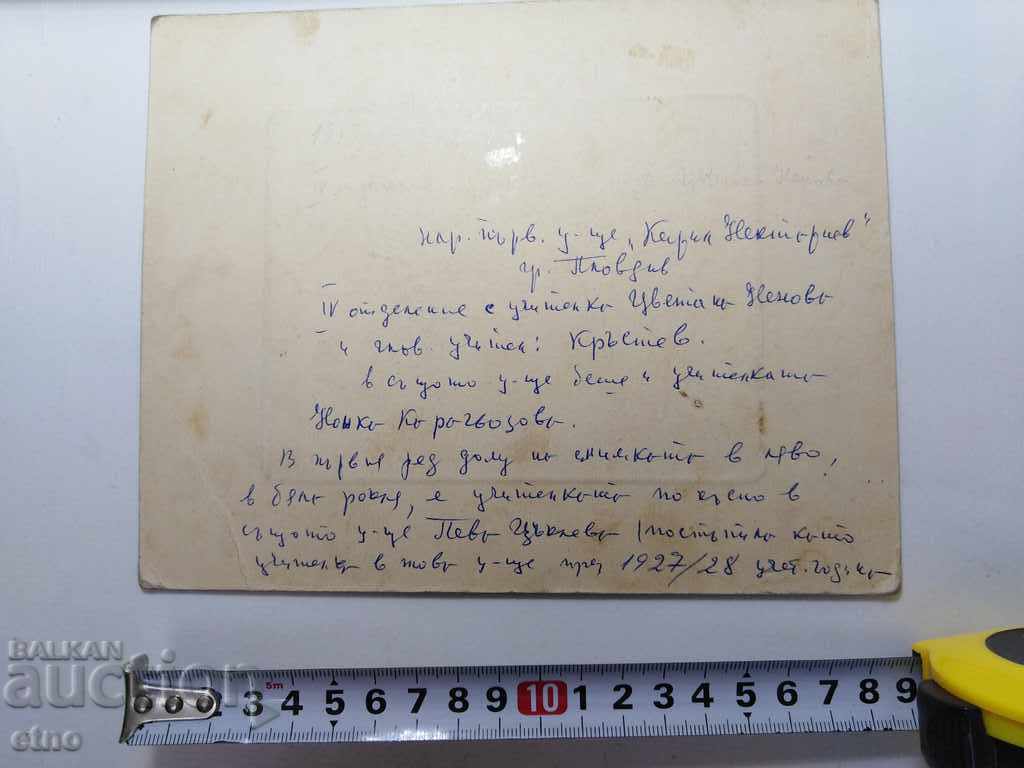 нар. първ. у-ще „Кирил Нектариев"
гр. Пловдив
IV отделение с учителка Цветана Ненова
и глав. учител: Кръстев.
в същото у-ще беше и учителката
Нонка Карагьозова.
В първия ред долу на снимката в ляво,
в бяла рокля, е учителката по късно в
същото у-ще Пева Цъклева (постъпила като
учителка в това у-ще през 1927/28 учеб. година
BALKAN
auction
etno
2 3 4 5 6 7 8 9 10 1 2 3 4 5 6 7 8 9
5m